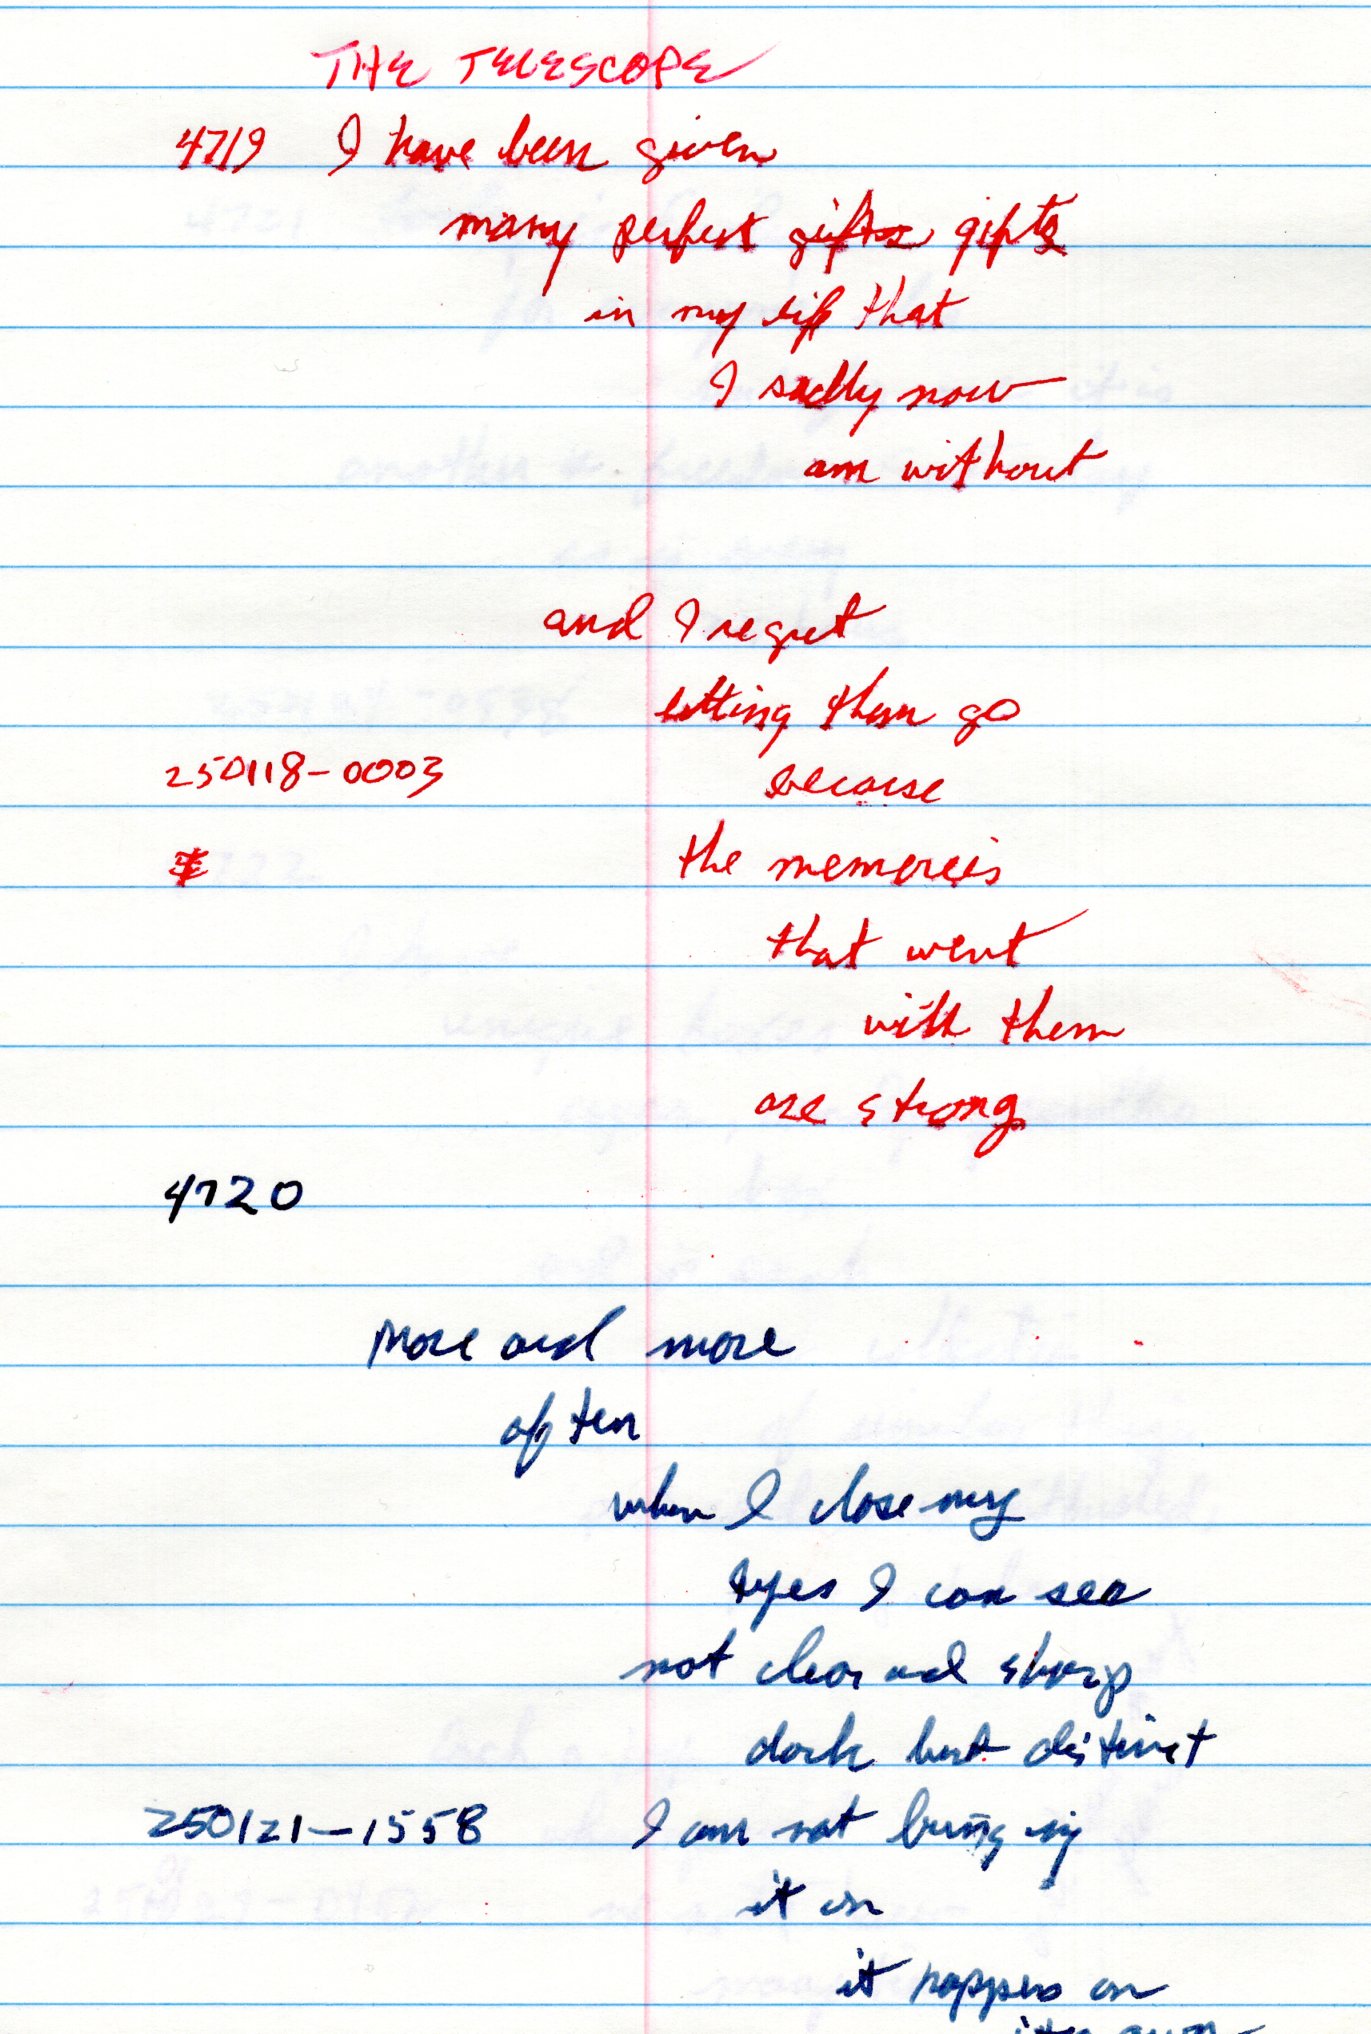 THE TELESCOPE
4719 I have been given
many perfect gifts gifts
in my life that
I sadly now
am without
and I regret
letting them go
250118-0003 because
the memories
that went
with them
are strong
4720
More and more
often
when I close my
eyes I can see
not clear and sharp
dark but distinct
250121-1558 I am not bringing
it on
it happens on
its own